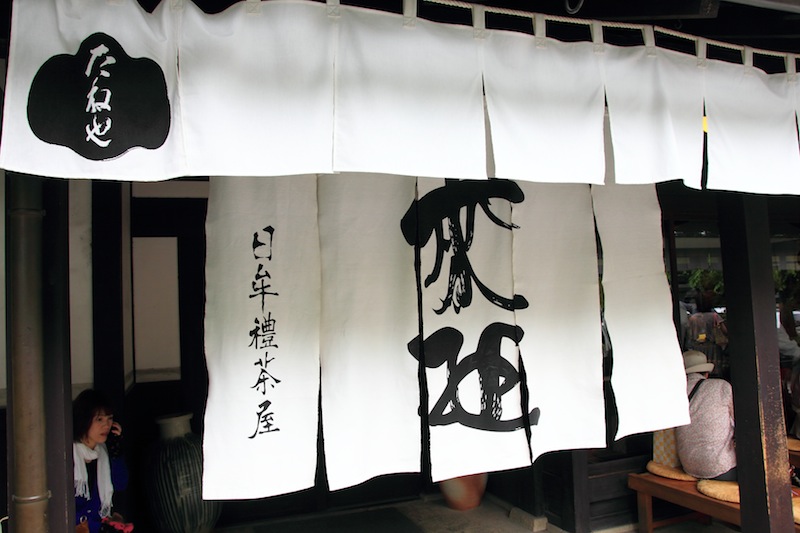 たねや
日牟禮茶屋